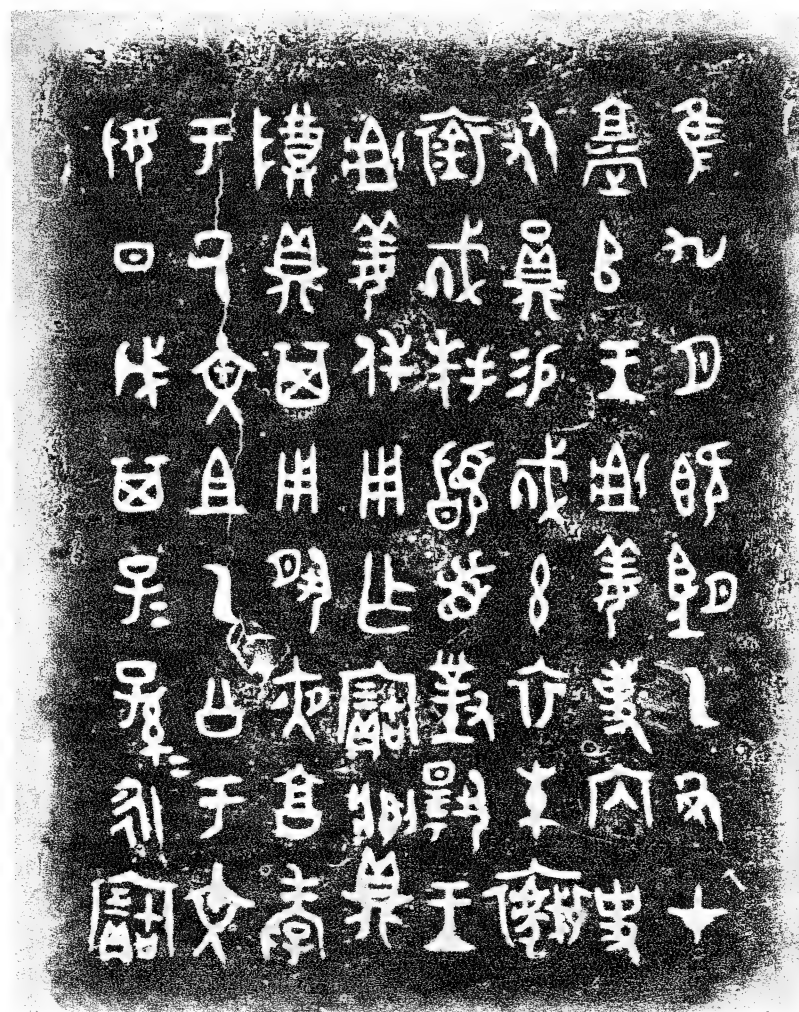 隹九月既朢乙丑才
𩫖𠂤王𠛱姜事内史
友員易㺇玄衣朱襮
裣㺇拜𩒨首對揚王
𠛱姜休用乍寶䵼
尊鼎其用夙夜享孝
于厥文且乙公于文
妣日戊其子子孫孫永寶